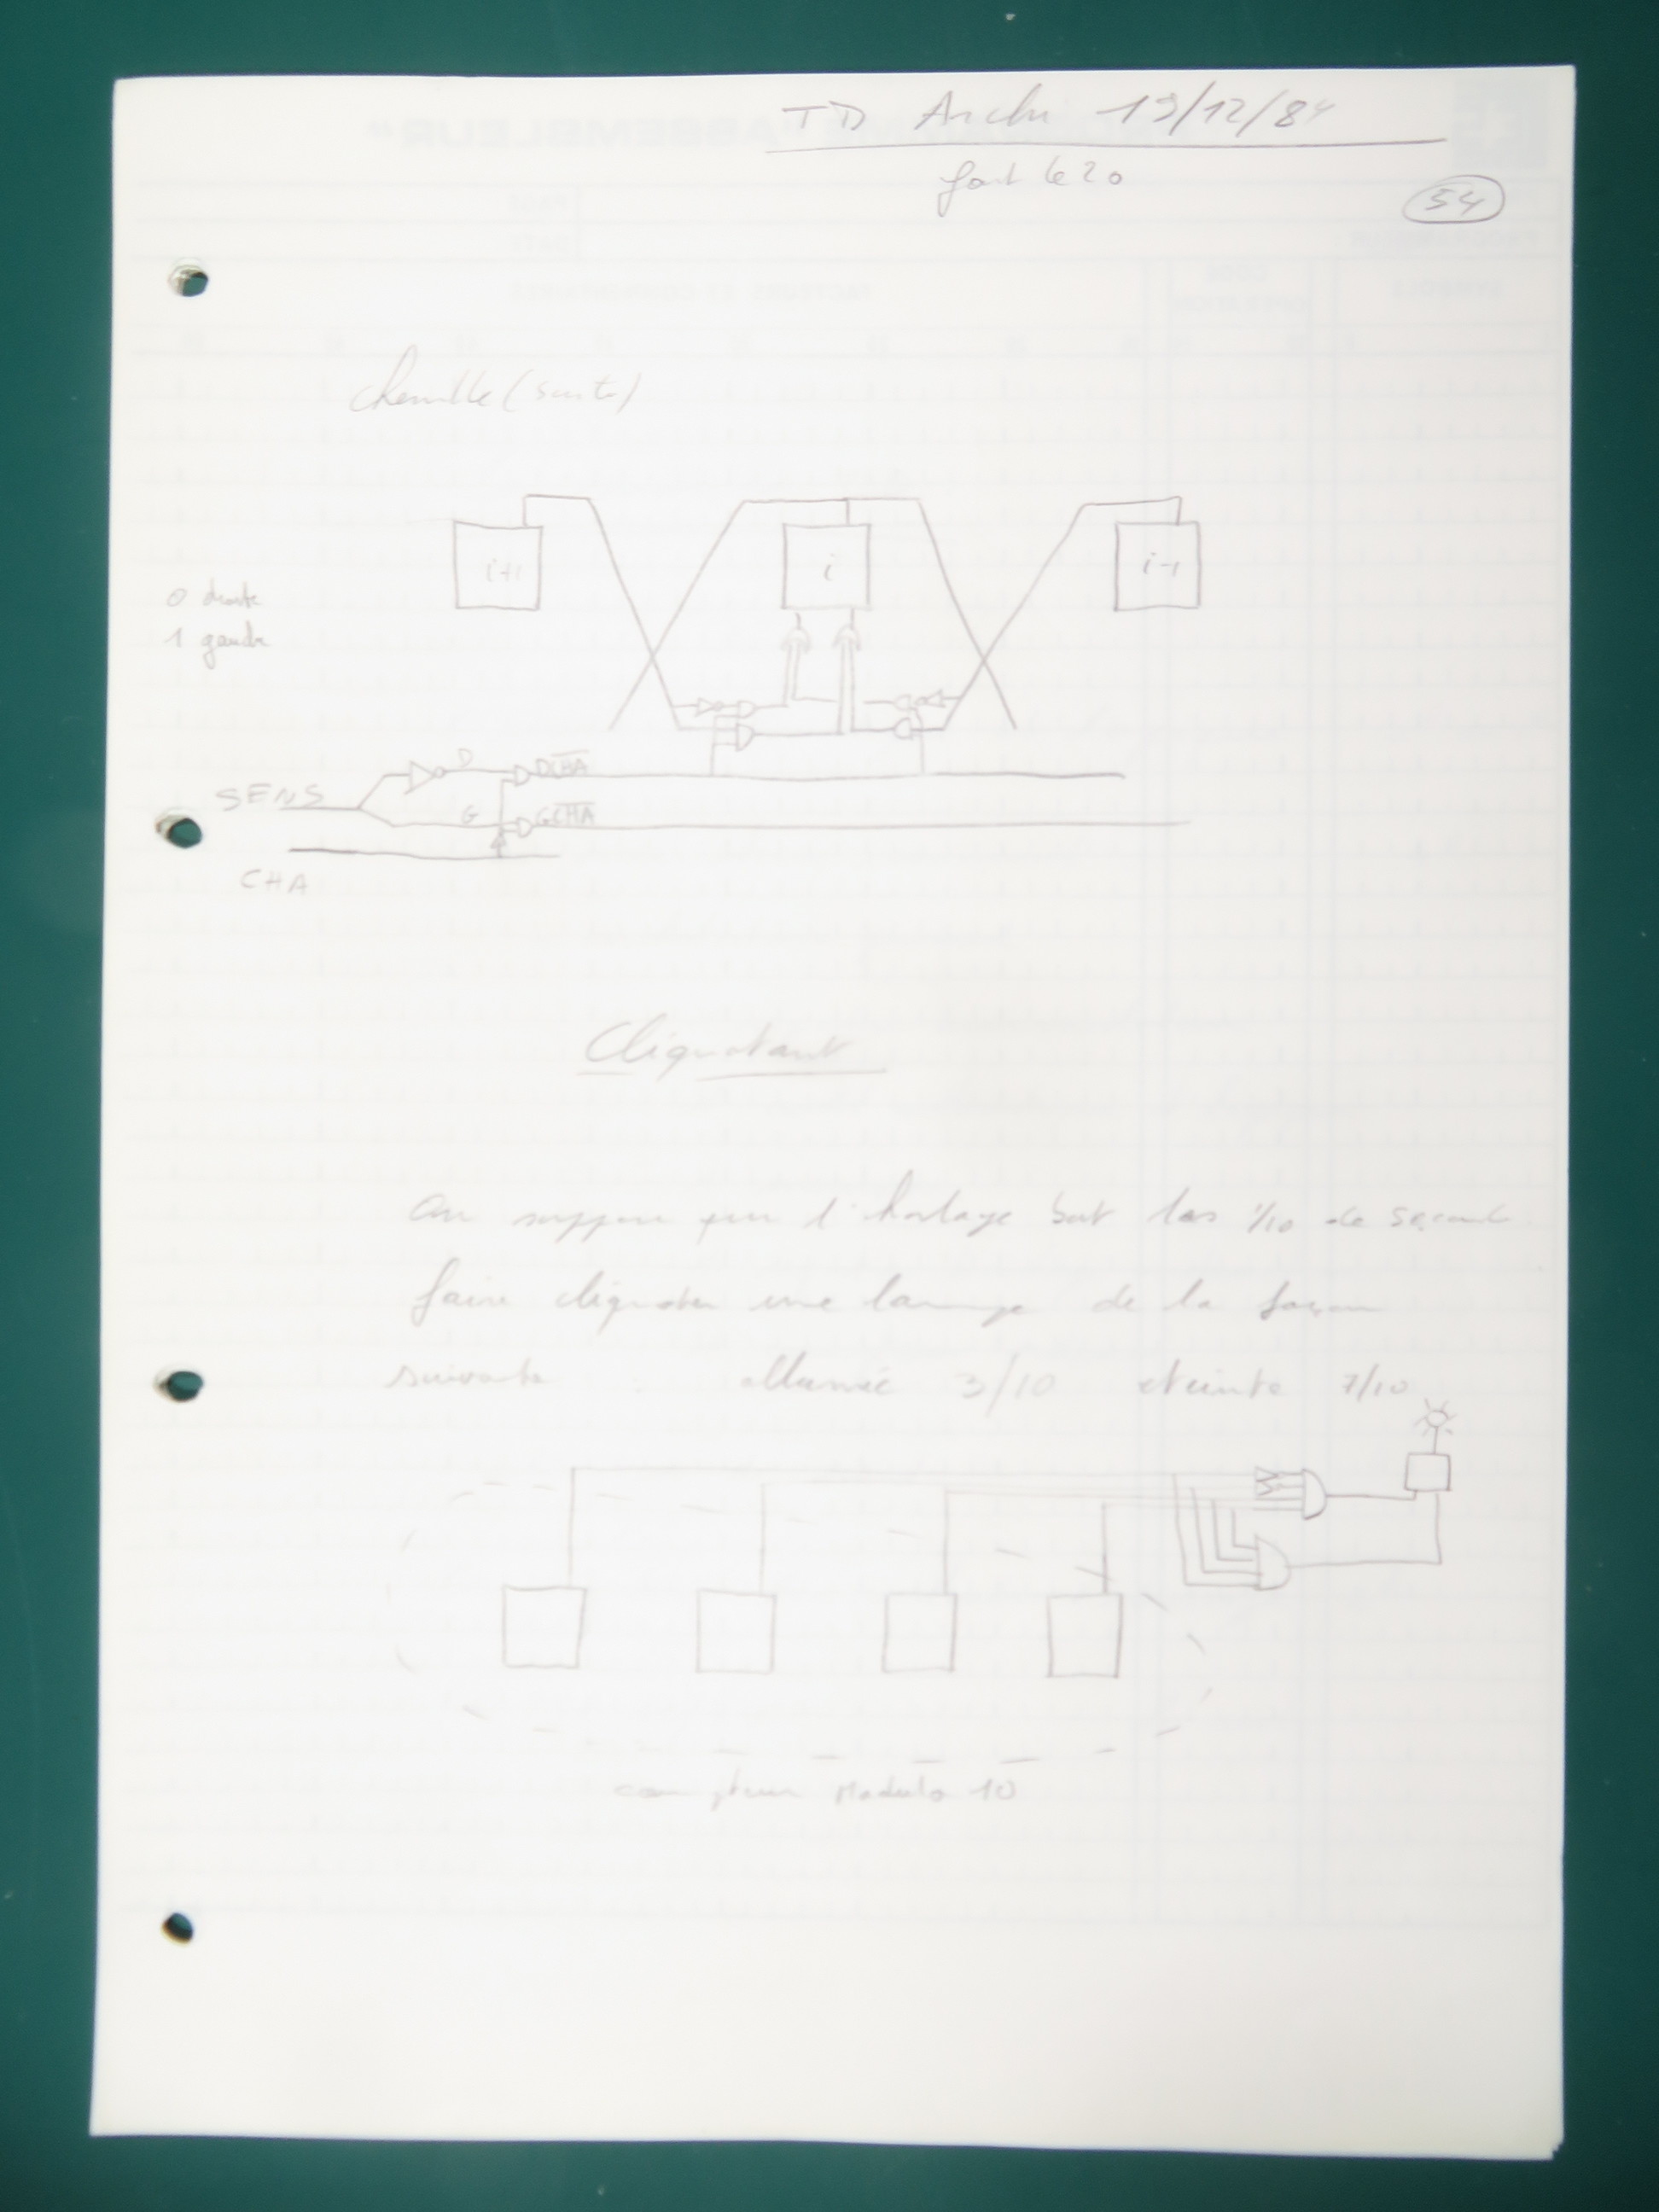 TD Archi 19/12/84
fait le 20
54
chenille (suite)
i+1
i
i-1
0 droite
1 gauche
D
DCHA
SENS
G
GCHA
CHA
Clignotant
On suppose que l'horloge bat les 1/10 de seconde
faire clignoter une lampe de la façon
suivante : allumée 3/10 eteinte 7/10
compteur Modulo 10